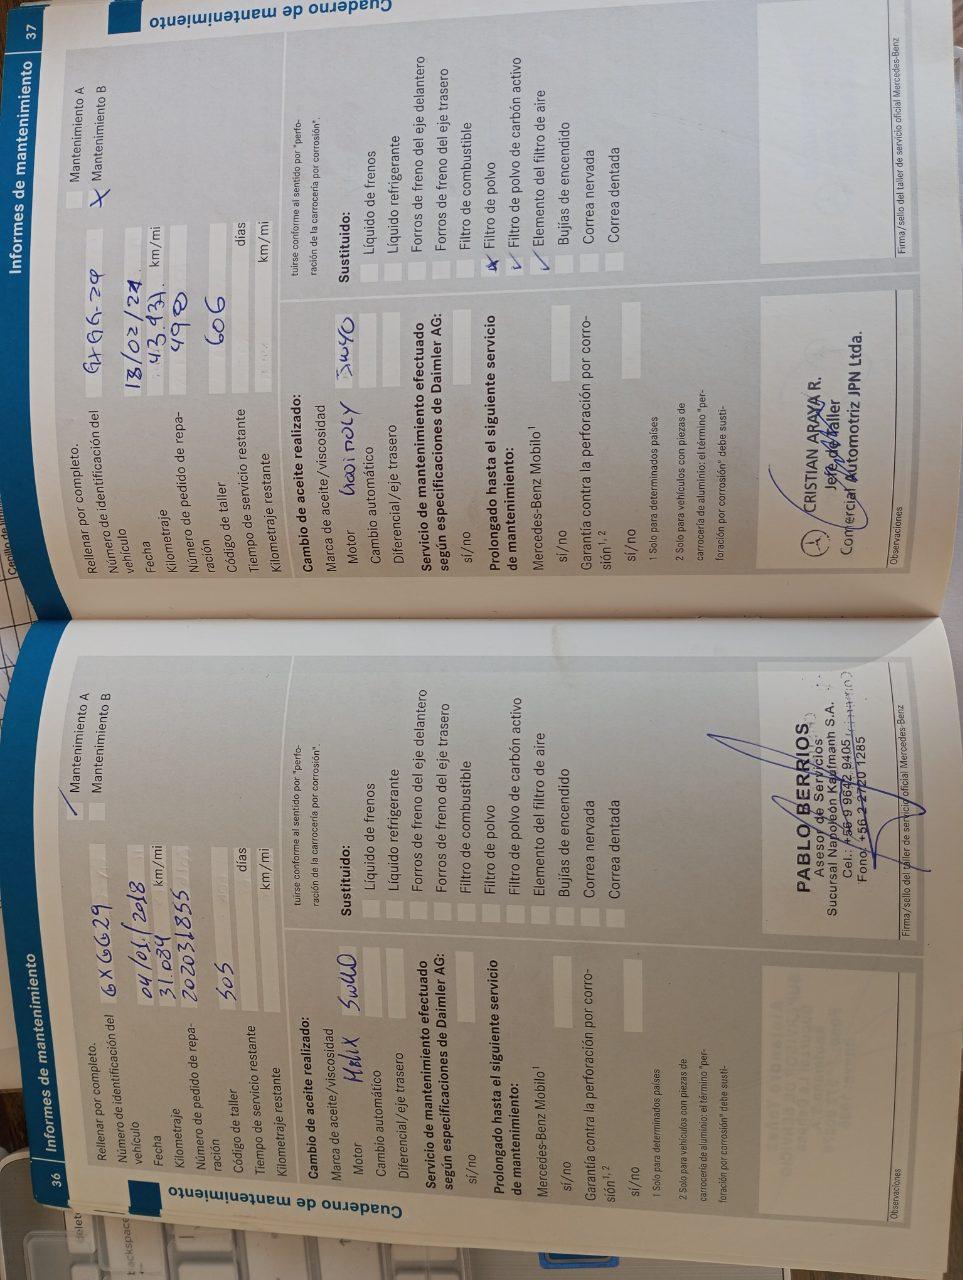 36 Informes de mantenimiento
Cuaderno de mantenimiento
Rellenar por completo.
Número de identificación del
vehículo GXGG29
Mantenimiento A
Mantenimiento B
Fecha 04/01/2018
Kilometraje 31.084 km/mi
Número de pedido de repa-
ración 202031855
Código de taller 505
Tiempo de servicio restante días
Kilometraje restante km/mi
Cambio de aceite realizado:
Marca de aceite/viscosidad
Motor Helix 5W40
Cambio automático
Diferencial/eje trasero
Servicio de mantenimiento efectuado
según especificaciones de Daimler AG:
sí/no
Prolongado hasta el siguiente servicio
de mantenimiento:
Mercedes-Benz Mobilo¹
sí/no
Garantía contra la perforación por corro-
sión¹, ²
sí/no
1 Solo para determinados países
2 Solo para vehículos con piezas de
carrocería de aluminio: el término "per-
foración por corrosión" debe susti-
tuirse conforme al sentido por "perfo-
ración de la carrocería por corrosión".
Sustituido:
Líquido de frenos
Líquido refrigerante
Forros de freno del eje delantero
Forros de freno del eje trasero
Filtro de combustible
Filtro de polvo
Filtro de polvo de carbón activo
Elemento del filtro de aire
Bujías de encendido
Correa nervada
Correa dentada
Observaciones
PABLO BERRIOS
Asesor de Servicios
Sucursal Napoleón Kaufmann S.A.
Cel.: +56 9 9642 9405
Fono: +56 2 2720 1285
Firma/sello del taller de servicio oficial Mercedes-Benz
Informes de mantenimiento 37
Cuaderno de mantenimiento
Rellenar por completo.
Número de identificación del
vehículo GXGG-29
Mantenimiento A
Mantenimiento B
Fecha 13/02/21
Kilometraje 43.931 km/mi
Número de pedido de repa-
ración 498
Código de taller 606
Tiempo de servicio restante días
Kilometraje restante km/mi
Cambio de aceite realizado:
Marca de aceite/viscosidad
Motor 5W40
Cambio automático
Diferencial/eje trasero
Servicio de mantenimiento efectuado
según especificaciones de Daimler AG:
sí/no
Prolongado hasta el siguiente servicio
de mantenimiento:
Mercedes-Benz Mobilo¹
sí/no
Garantía contra la perforación por corro-
sión¹, ²
sí/no
1 Solo para determinados países
2 Solo para vehículos con piezas de
carrocería de aluminio: el término "per-
foración por corrosión" debe susti-
tuirse conforme al sentido por "perfo-
ración de la carrocería por corrosión".
Sustituido:
Líquido de frenos
Líquido refrigerante
Forros de freno del eje delantero
Forros de freno del eje trasero
Filtro de combustible
Filtro de polvo
Filtro de polvo de carbón activo
Elemento del filtro de aire
Bujías de encendido
Correa nervada
Correa dentada
CRISTIAN ARAYA R.
Jefe de Taller
Comercial Automotriz JPN Ltda.
Observaciones
Firma/sello del taller de servicio oficial Mercedes-Benz
delete
backspace